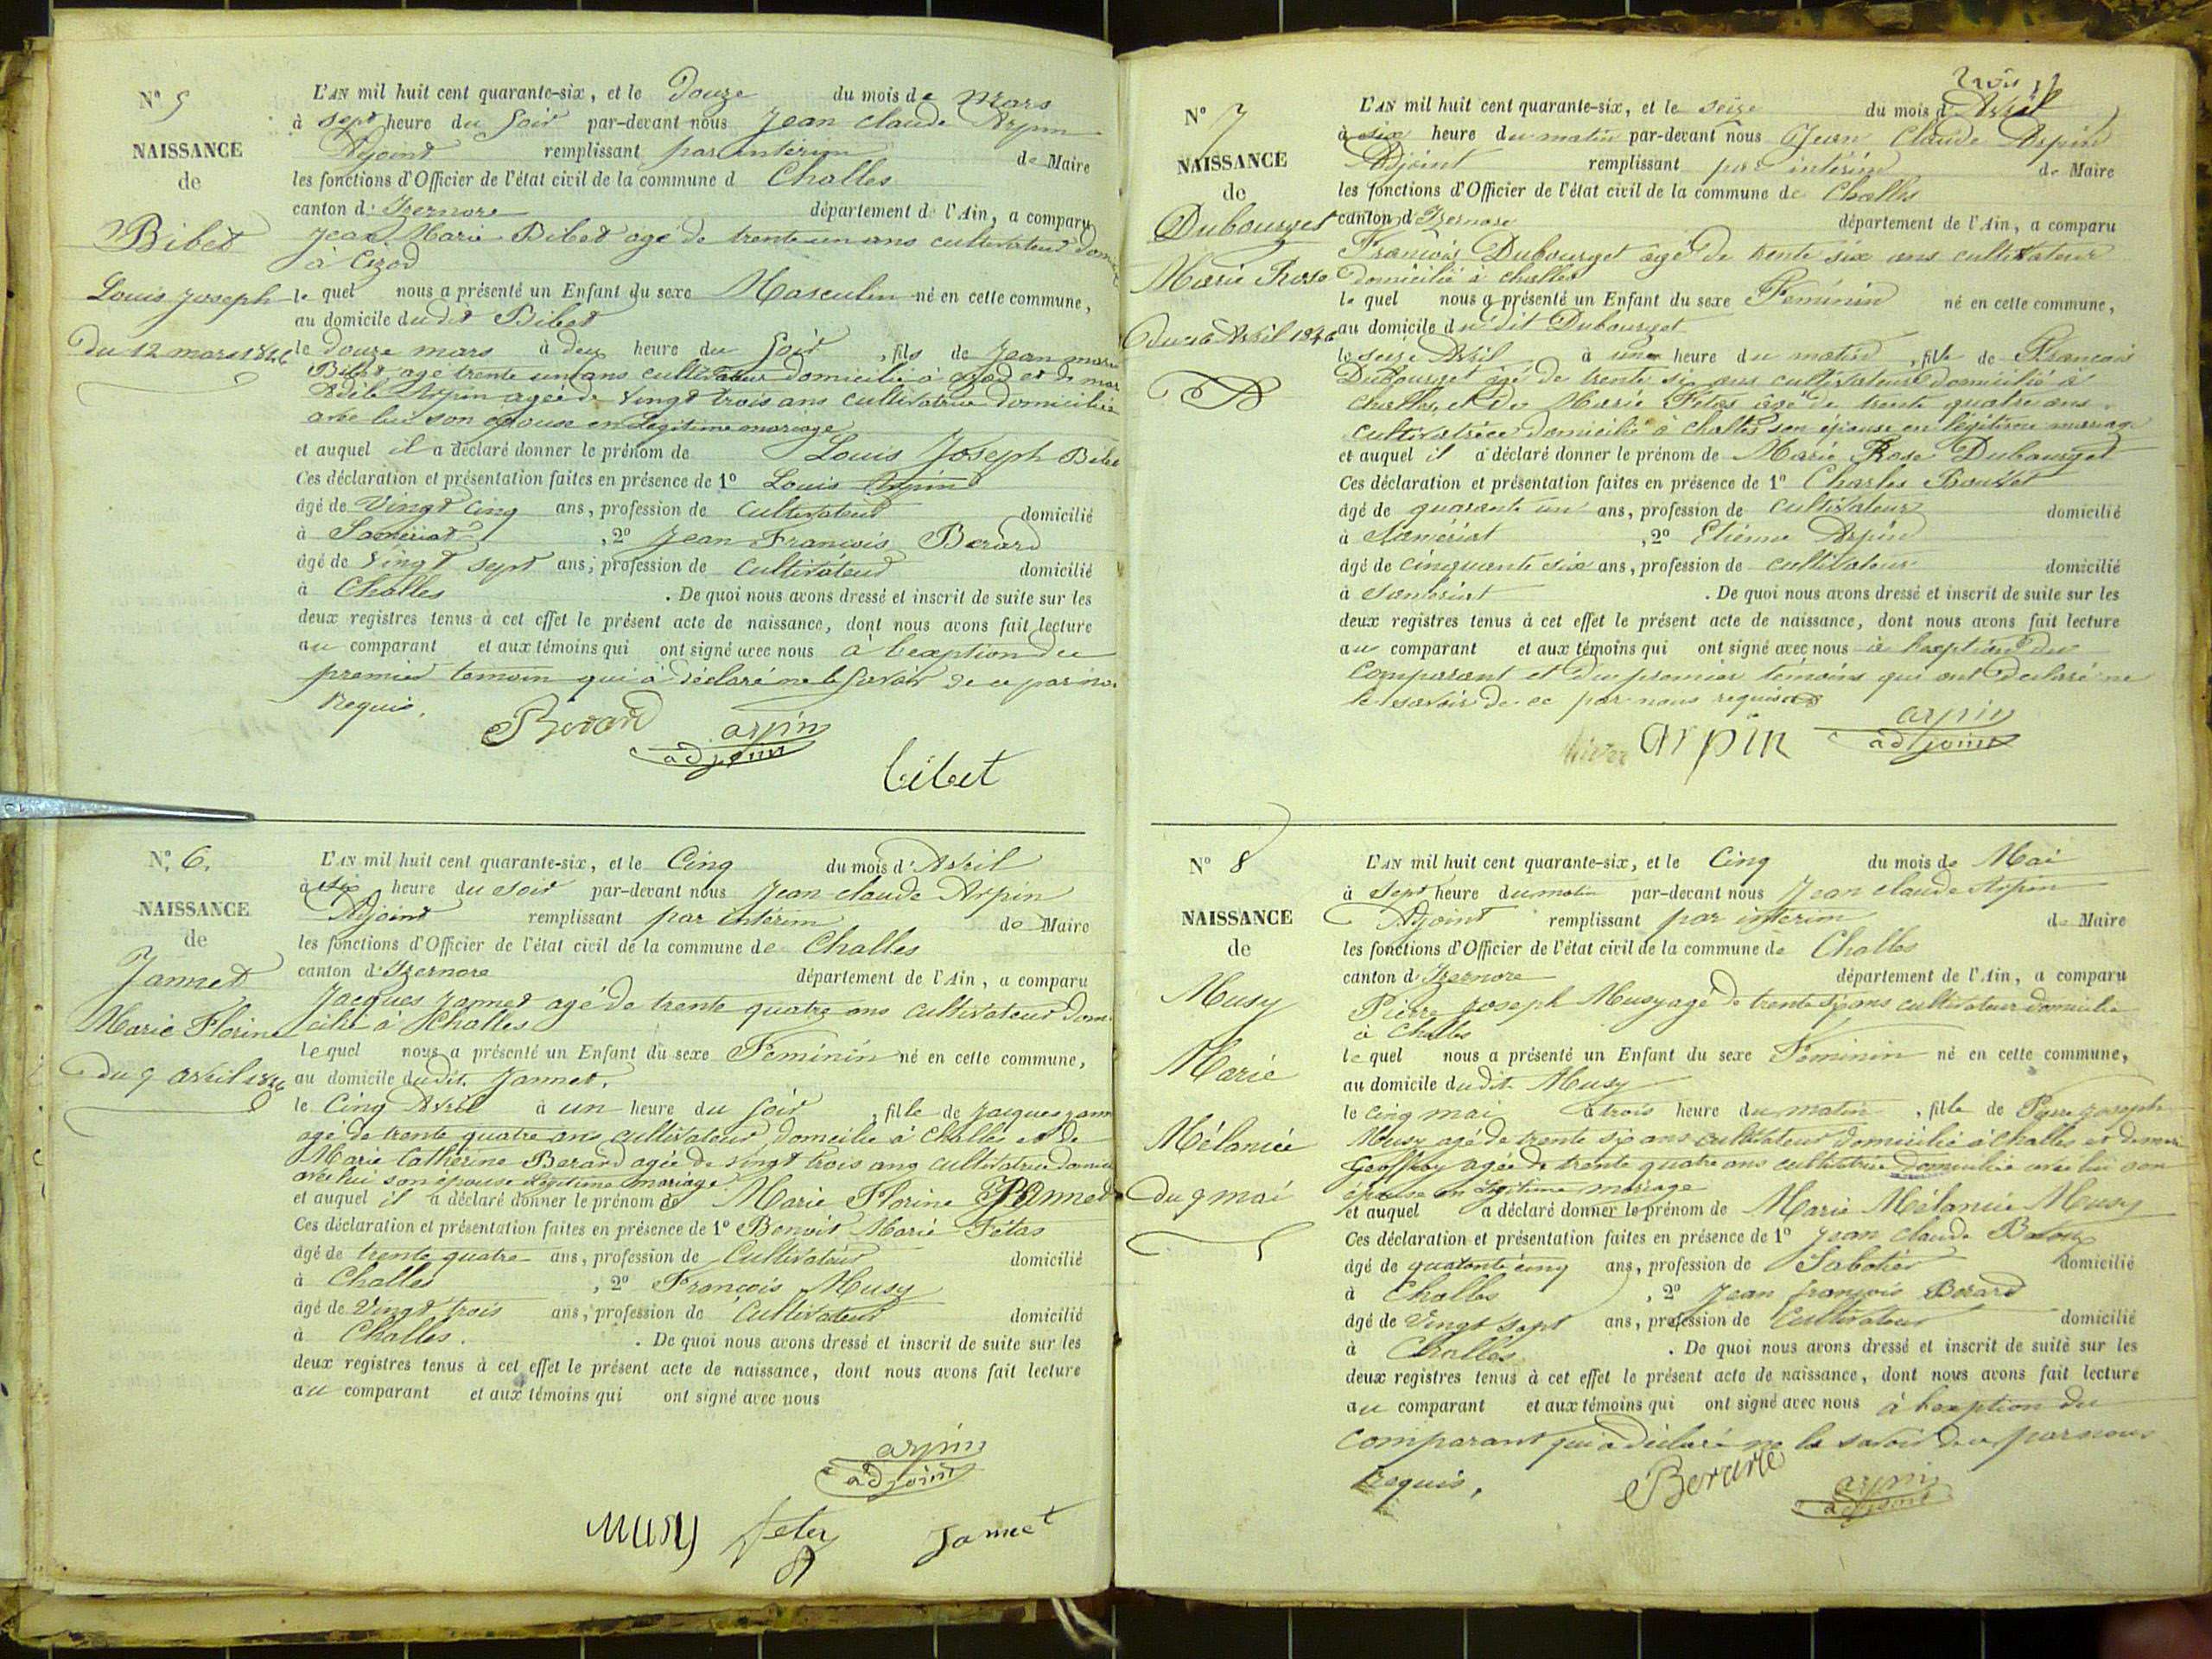 N° 5
NAISSANCE
de
Bibet
Louis Joseph
du 12 mars 1846
L'AN mil huit cent quarante-six, et le Douze du mois de Mars
à sept heure du soir par-devant nous Jean claude Arpin
Adjoint remplissant par interim de Maire
les fonctions d'Officier de l'état civil de la commune d Challes
canton d'Izernore département de l'Ain, a comparu
Jean Marie Bibet agé de trente un ans cultivateur dom
à Cizod
le quel nous a présenté un Enfant du sexe Masculin né en cette commune,
au domicile dudit Bibet
le douze mars à deux heure du soir, fils de Jean marie
Bibet agé trente un ans cultivateur domicilié à et de mar
Adèle Arpin agée de vingt trois ans cultivatrice domiciliée
avec lui son epouse en Legitime mariage
et auquel il a déclaré donner le prénom de Louis Joseph Bibet
Ces déclaration et présentation faites en présence de 1° Louis Arpin
âgé de Vingt Cinq ans, profession de Cultivateur domicilié
à Samériat, 2° Jean François Berard
âgé de Vingt sept ans, profession de Cultivateur domicilié
à Challes. De quoi nous avons dressé et inscrit de suite sur les
deux registres tenus à cet effet le présent acte de naissance, dont nous avons fait lecture
au comparant et aux témoins qui ont signé avec nous à lexeption du
premier temoin qui à déclaré ne le savoir de ce par nou
Requis.
Berard arpin
adjoint
bibet
N° 6.
NAISSANCE
de
Jannet
Marie Florine
du 5 avril 1846
L'AN mil huit cent quarante-six, et le Cinq du mois d'Avril
à six heure du soir par-devant nous Jean claude Arpin
Adjoint remplissant par intérim de Maire
les fonctions d'Officier de l'état civil de la commune de Challes
canton d'Izernore département de l'Ain, a comparu
Jacques Jannet agé de trente quatre ans cultivateur domi
cilié à Challes
le quel nous a présenté un Enfant du sexe Féminin né en cette commune,
au domicile dudit Jannet.
le Cinq Avril à un heure du soir, fille de Jacques jann
agé de trente quatre ans cultivateur domicilié à Challes et de
Marie Catherine Berard agée de vingt trois ans cultivatrice domici
avec lui son épouse Légitime mariage
et auquel il a déclaré donner le prénom de Marie Florine Jannet
Ces déclaration et présentation faites en présence de 1° Benoit Marie Fétas
âgé de trente quatre ans, profession de Cultivateur domicilié
à Challes, 2° François Musy
âgé de Vingt trois ans, profession de Cultivateur domicilié
à Challes. De quoi nous avons dressé et inscrit de suite sur les
deux registres tenus à cet effet le présent acte de naissance, dont nous avons fait lecture
au comparant et aux témoins qui ont signé avec nous
arpin
adjoint
Musy Jannet
N° 7
NAISSANCE
de
Dubourget
Marie Rose
du 16 Avril 1846
L'AN mil huit cent quarante-six, et le seize du mois d'Avril
à six heure du matin par-devant nous Jean Claude Arpin
Adjoint remplissant par intérim de Maire
les fonctions d'Officier de l'état civil de la commune de Challes
canton d'Izernore département de l'Ain, a comparu
François Dubourget âgé de trente six ans cultivateur
domicilié à challes
le quel nous a présenté un Enfant du sexe Féminin né en cette commune,
au domicile du dit Dubourget
le seize Avril à une heure du matin, fille de François
Dubourget âgé de trente six ans cultivateur domicilié à
Challes, et de Marie Fétas âgé de trente quatre ans
cultivatrice domicilié à challes son épouse en légitime mariage
et auquel il a déclaré donner le prénom de Marie Rose Dubourget
Ces déclaration et présentation faites en présence de 1° Charles
âgé de quarante un ans, profession de cultivateur domicilié
à Samériat, 2° Etienne Arpin
âgé de cinquante six ans, profession de cultivateur domicilié
à Samériat. De quoi nous avons dressé et inscrit de suite sur les
deux registres tenus à cet effet le présent acte de naissance, dont nous avons fait lecture
au comparant et aux témoins qui ont signé avec nous à lexeption du
comparant et du premier témoins qui ont Déclaré ne
le savoir de ce par nous requis
arpin arpin
adjoint
N° 8
NAISSANCE
de
Musy
Marie
Mélanie
du 5 mai
L'AN mil huit cent quarante-six, et le Cinq du mois de Mai
à Sept heure du matin par-devant nous Jean claude Arpin
Adjoint remplissant par interim de Maire
les fonctions d'Officier de l'état civil de la commune de Challes
canton d'Izernore département de l'Ain, a comparu
Pierre Joseph Musy agé de trente six ans cultivateur domicilié
à Challes
le quel nous a présenté un Enfant du sexe Féminin né en cette commune,
au domicile dudit Musy
le cinq mai à trois heure du matin, fille de Pierre joseph
Musy agé de trente six ans cultivateur domicilié à challes et de mari
Geoffray agée de trente quatre ans cultivatrice domiciliée avec lui son
épouse en Légitime mariage
et auquel a déclaré donner le prénom de Marie Mélanie Musy
Ces déclaration et présentation faites en présence de 1° Jean claude
âgé de quarante cinq ans, profession de Sabotier domicilié
à Challes, 2° Jean françois Berard
âgé de Vingt sept ans, profession de Cultivateur domicilié
à Challes. De quoi nous avons dressé et inscrit de suite sur les
deux registres tenus à cet effet le présent acte de naissance, dont nous avons fait lecture
au comparant et aux témoins qui ont signé avec nous à lexeption du
comparant qui a déclaré ne le savoir de ce par nous
Requis,
Berard arpin
adjoint